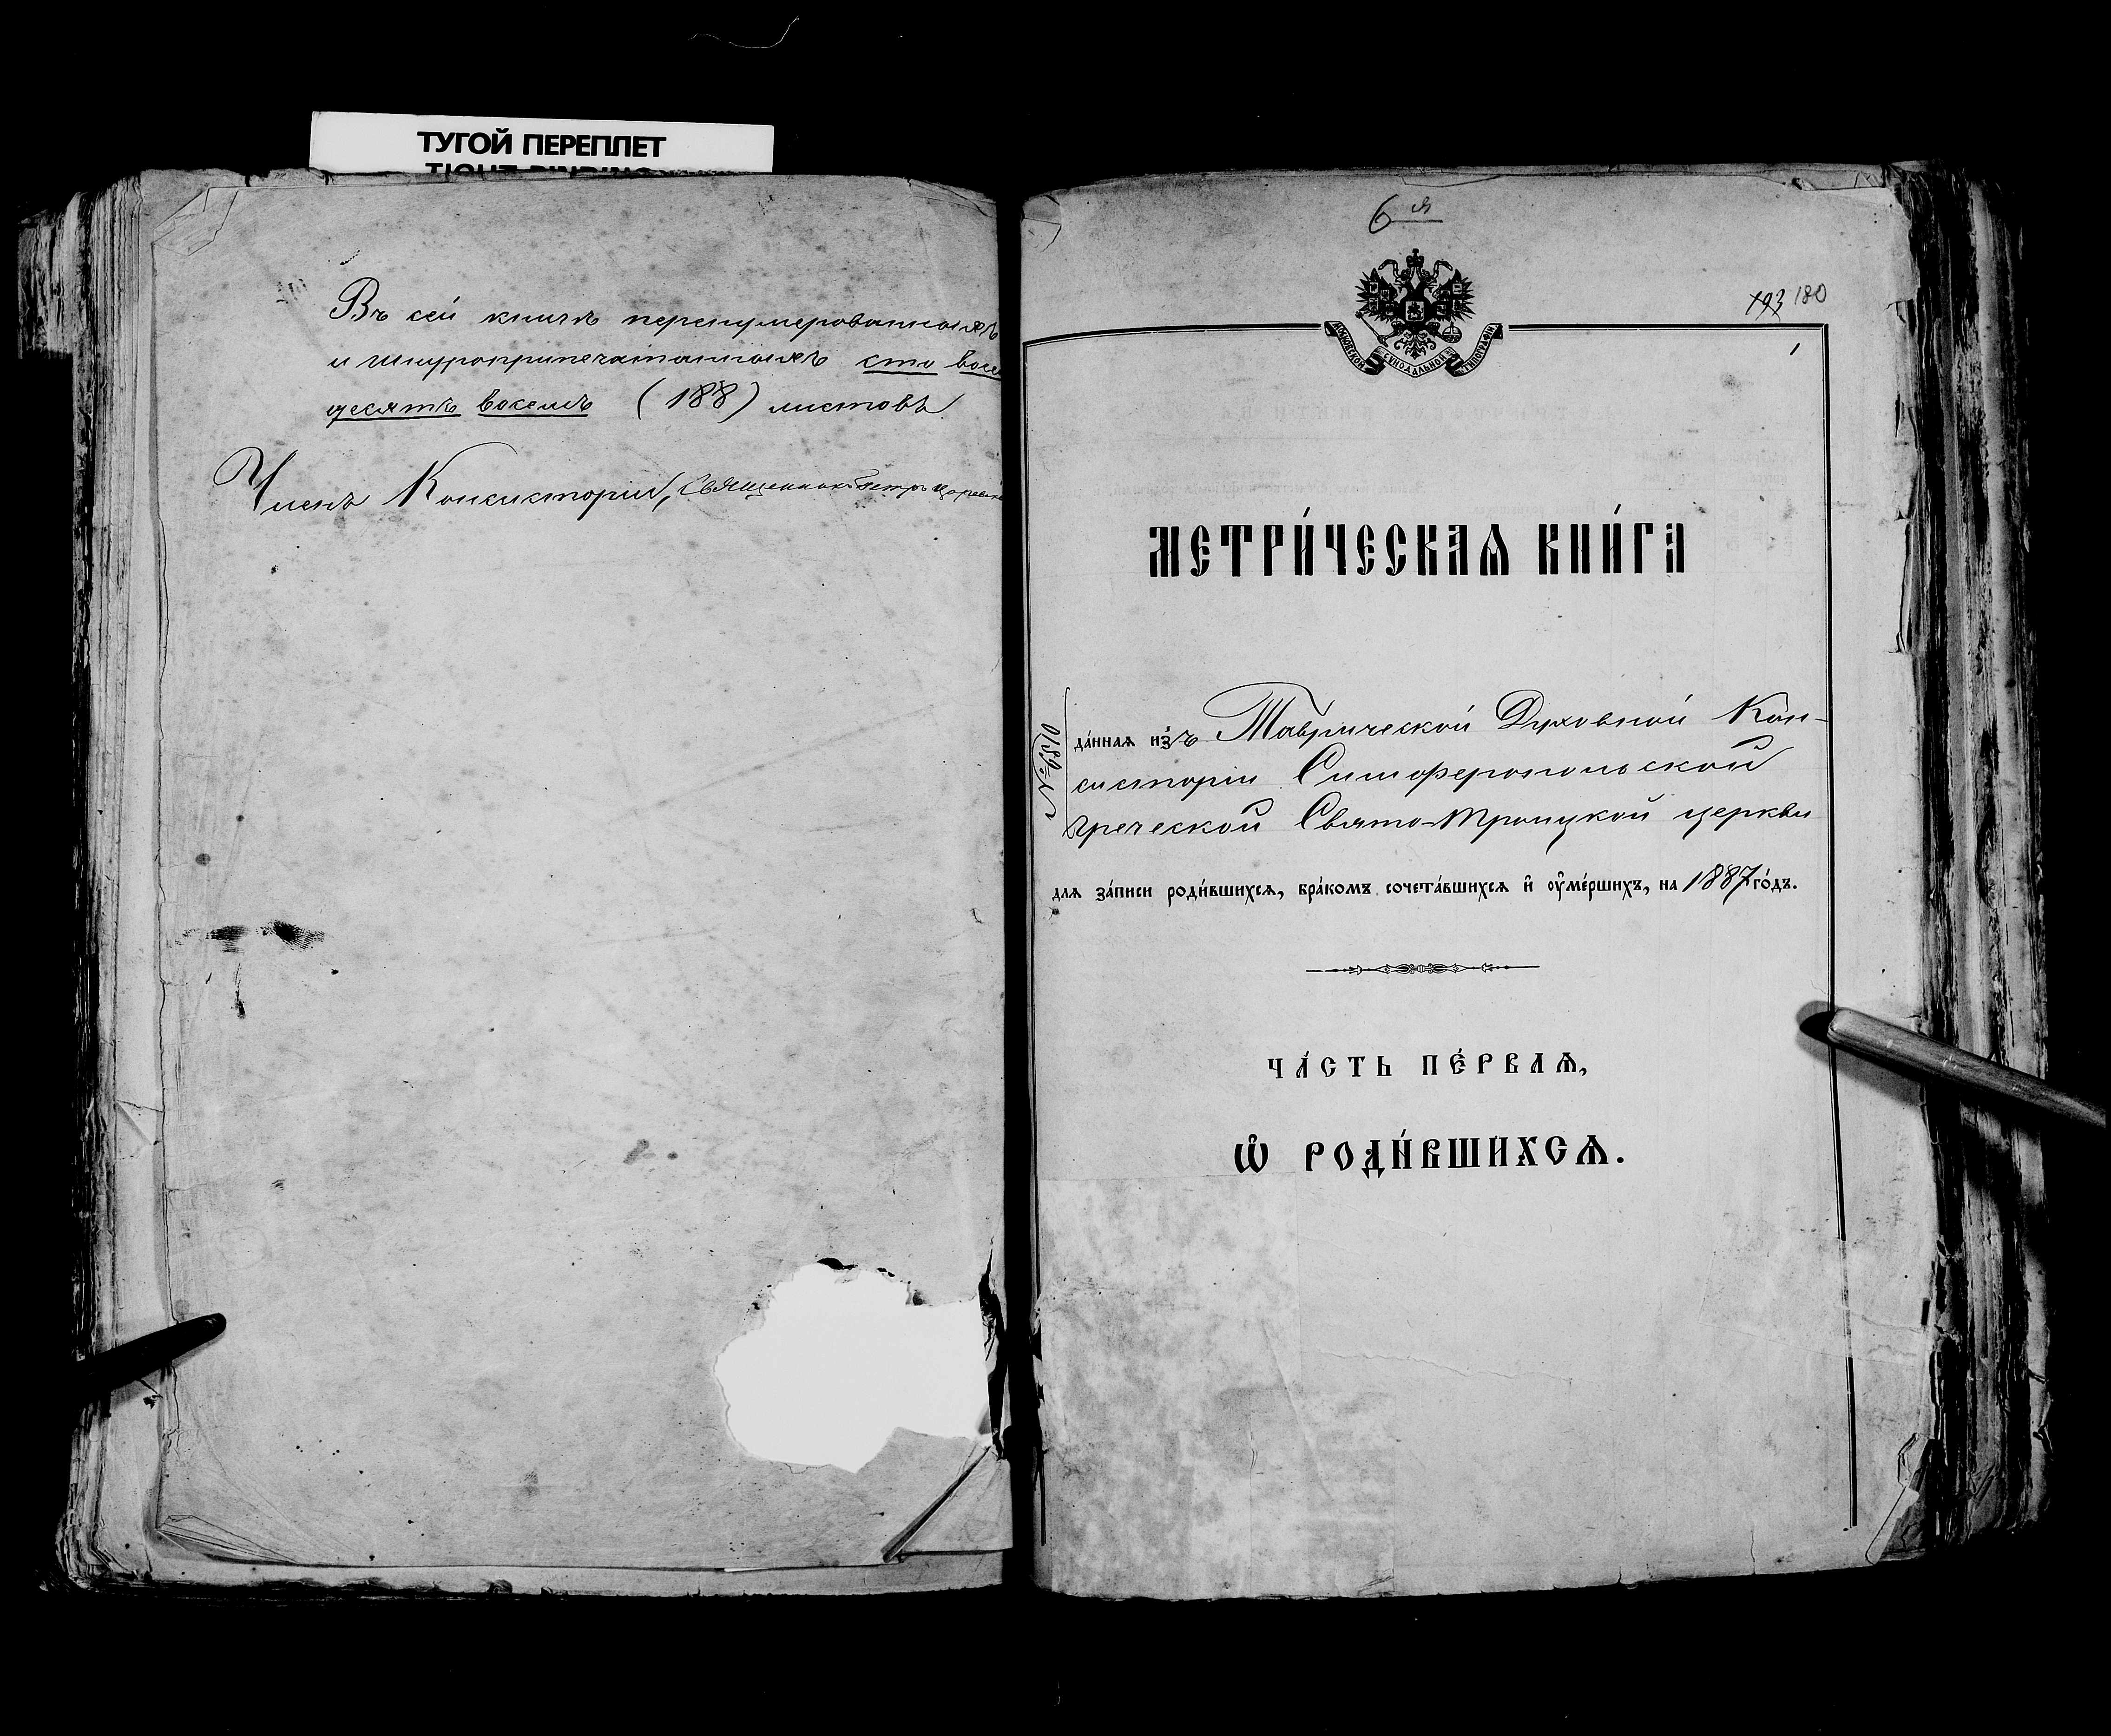 ТУГОЙ ПЕРЕПЛЕТ
TIGHT BINDING
Въ сей книгѣ перенумерованныхъ
и шнуроприпечатанныхъ сто восемь
десятъ восемь (188) листовъ.
Членъ Консисторіи, Священникъ Петръ
6я
193 180
1
МОСКОВСКОЙ СУНОДАЛЬНОЙ ТИПОГРАФІИ
МЕТРИ́ЧЕСКАѦ КНИ́ГА
№ 9810
да́ннаѧ и҆зъ Таврической Духовной Кон-
систоріи Симферопольской
греческой Свято-Троицкой церкви
длѧ за́писи роди́вшихсѧ, бра́комъ сочета́вшихсѧ и҆ ѹ҆ме́ршихъ, на 1887 го́дъ.
ЧА́СТЬ ПЕ́РВАѦ,
Ѡ҆ РОДИ́ВШИХСѦ.